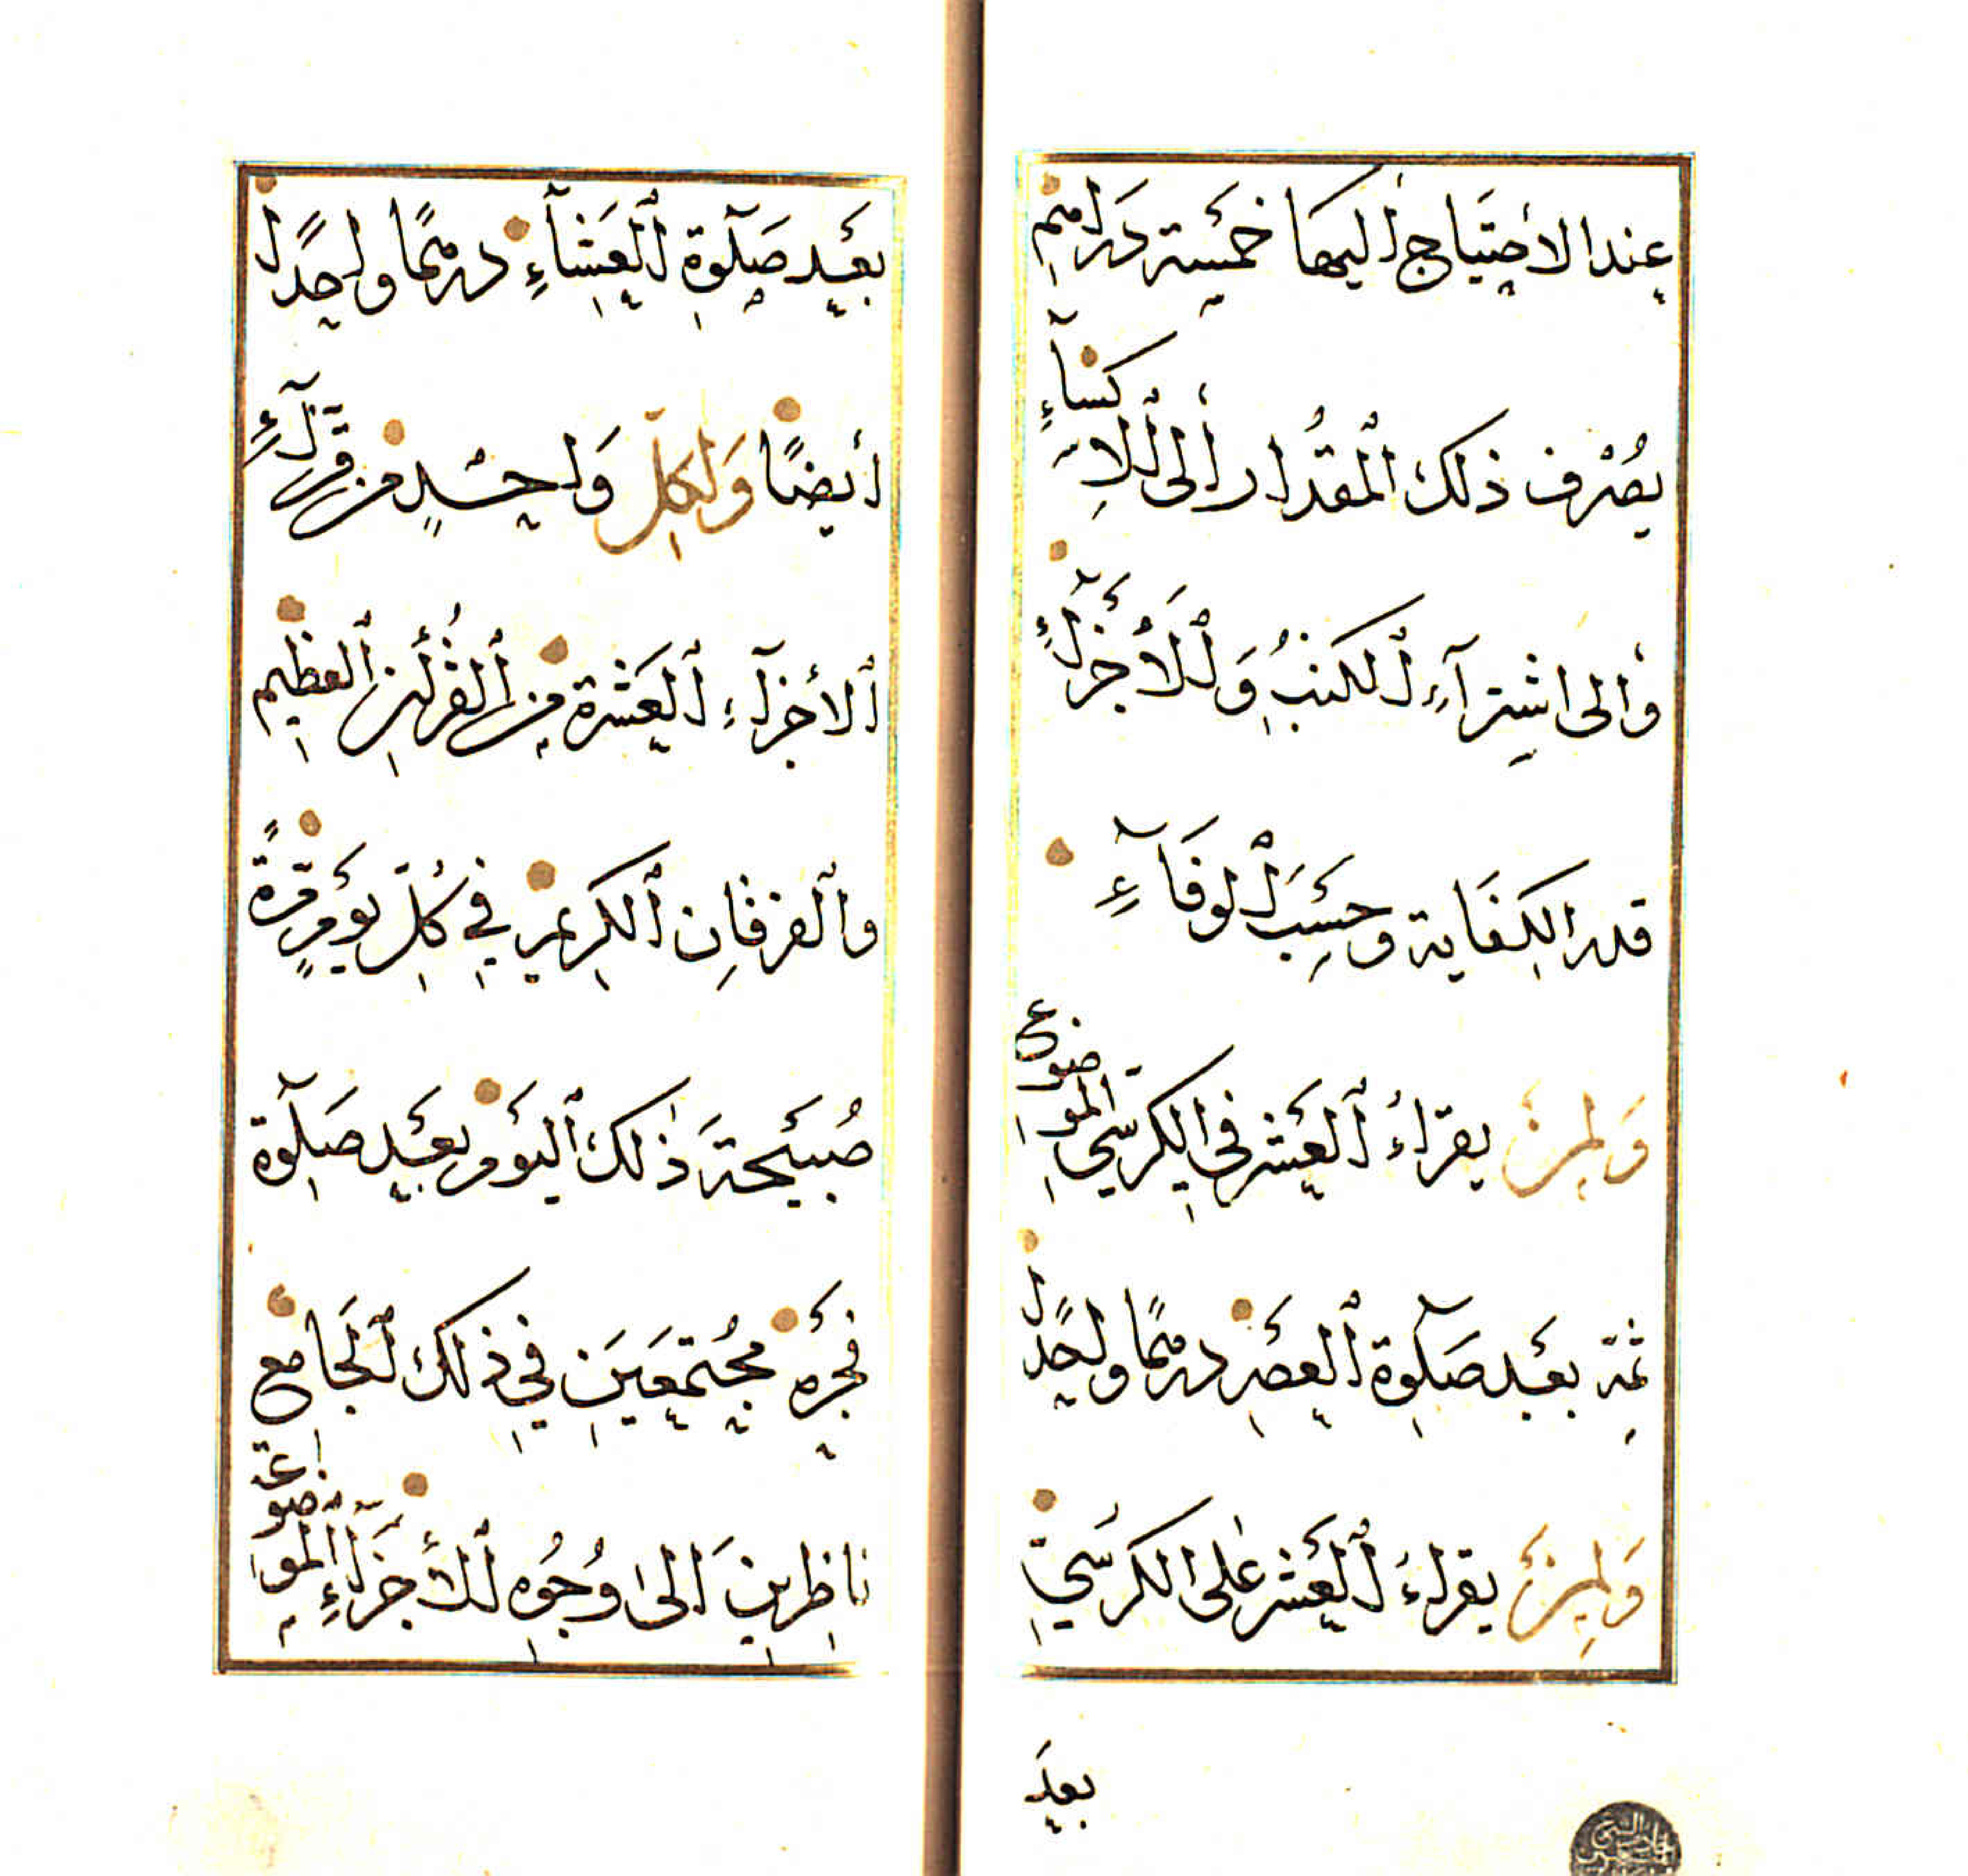 عند الاحتياج اليها خمسة دراهم
يصرف ذلك المقدار الى الاكساء
والى اشتراء الكتب والاجزاء
قدر الكفاية وحسب الوفاء
ولمن يقراء العشر في الكرسي الموضوع
ثمة بعد صلوة العصر درهما واحدا
ولمن يقراء العشر على الكرسي
بعد
بعد صلوة العشاء درهما واحدا
ايضا ولكل واحد من قراء
الاجزاء العشرة من القرآن العظيم
والفرقان الكريم في كل يوم مرة
صبيحة ذلك اليوم بعد صلوة
فجره مجتمعين في ذلك الجامع
ناظرين الى وجوه الاجزاء الموضوعة